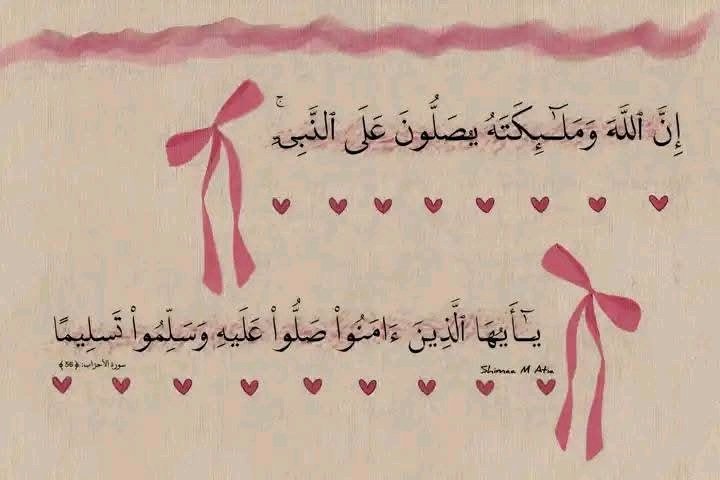 إِنَّ ٱللَّهَ وَمَلَـٰٓئِكَتَهُ يُصَلُّونَ عَلَى ٱلنَّبِىِّ ۚ
يَـٰٓأَيُّهَا ٱلَّذِينَ ءَامَنُوا۟ صَلُّوا۟ عَلَيْهِ وَسَلِّمُوا۟ تَسْلِيمًا
سورة الأحزاب: ﴿56﴾
Shimaa M Atia